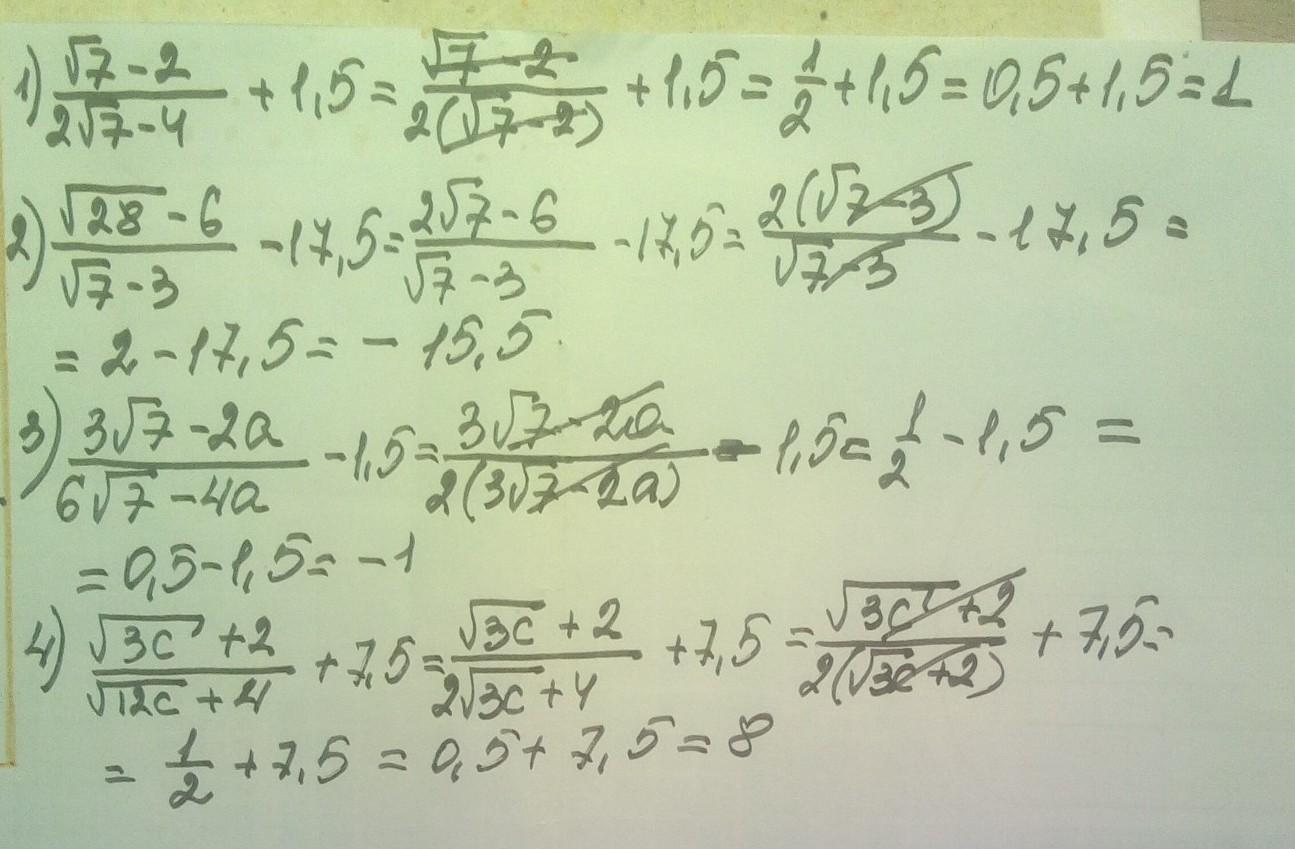 1) (√7-2)/(2√7-4) + 1,5 = (√7-2)/(2(√7-2)) + 1,5 = 1/2 + 1,5 = 0,5+1,5 = 1
2) (√28-6)/(√7-3) - 17,5 = (2√7-6)/(√7-3) - 17,5 = (2(√7-3))/(√7-3) - 17,5 =
= 2 - 17,5 = - 15,5
3) (3√7-2a)/(6√7-4a) - 1,5 = (3√7-2a)/(2(3√7-2a)) - 1,5 = 1/2 - 1,5 =
= 0,5-1,5 = -1
4) (√3c+2)/(√12c+4) + 7,5 = (√3c+2)/(2√3c+4) + 7,5 = (√3c+2)/(2(√3c+2)) + 7,5 =
= 1/2 + 7,5 = 0,5 + 7,5 = 8